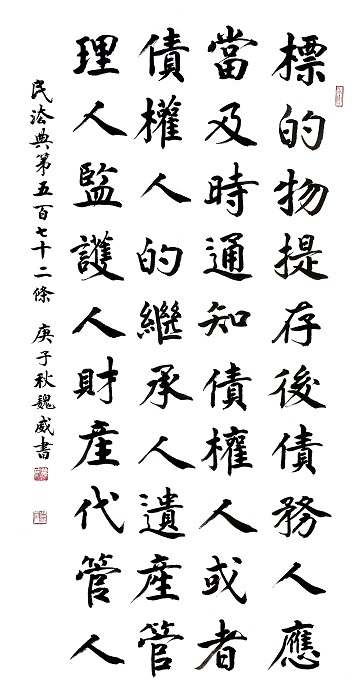 標的物提存後債務人應
當及時通知債權人或者
債權人的繼承人遺產管
理人監護人財產代管人
民法典第五百七十二條 庚子秋魏威書